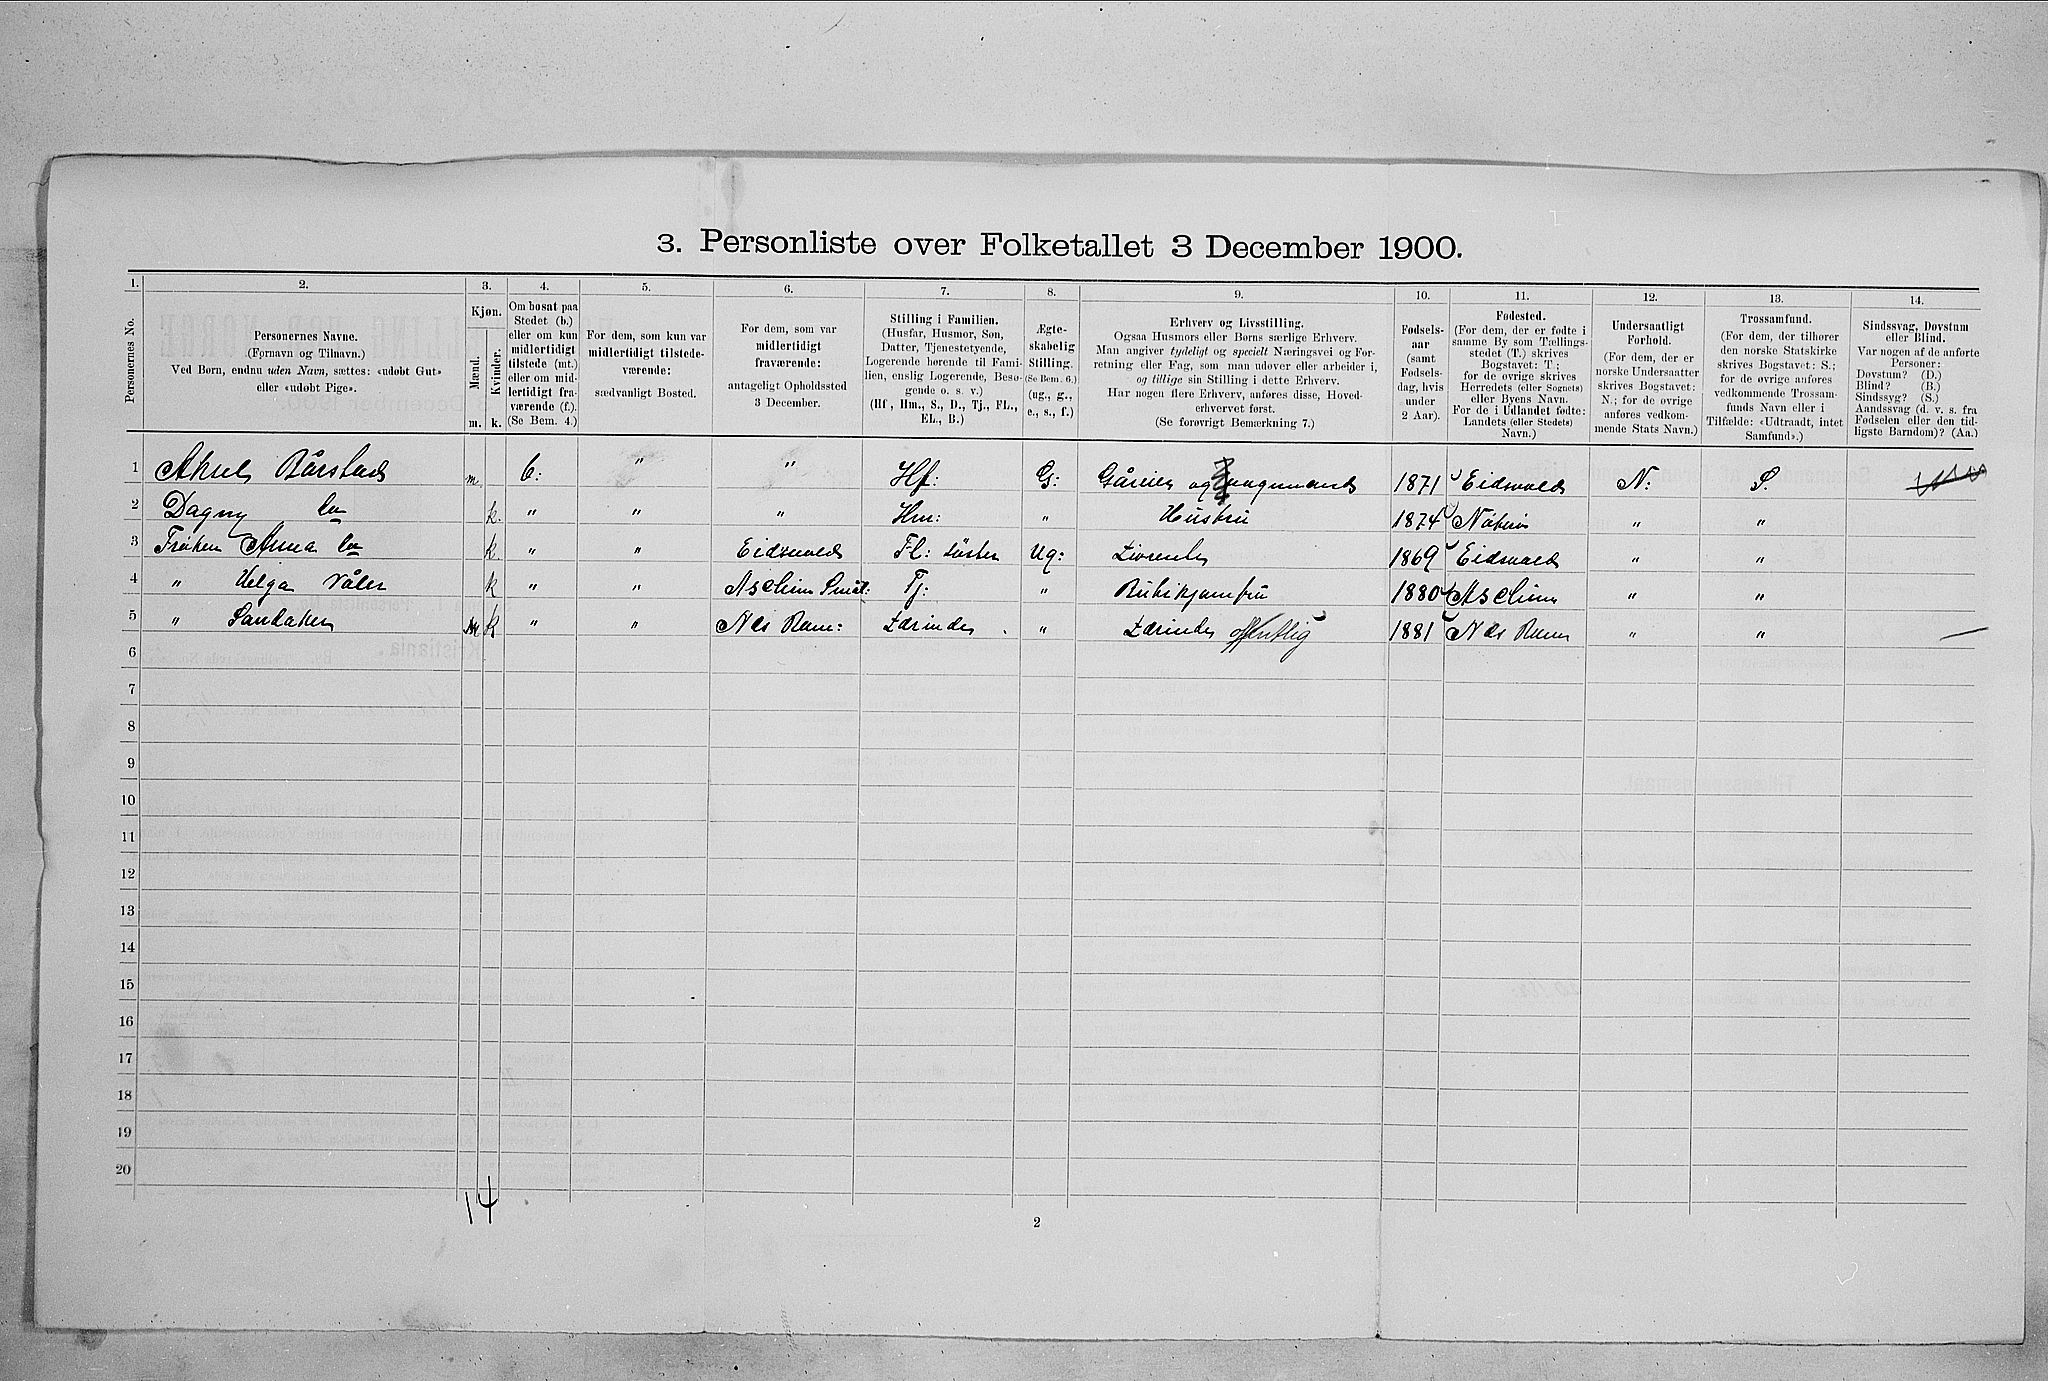 3. Personliste over Folketallet 3 December 1900.
1. 2. 3. 4. 5. 6. 7. 8. 9. 10. 11. 12. 13. 14.
Personernes No.
Personernes Navne.
(Fornavn og Tilnavn.)
Ved Børn, endnu uden Navn, sættes: «udøbt Gut»
eller «udøbt Pige».
Kjøn.
Mænd.
Kvinder.
m. k.
Om bosat paa
Stedet (b.)
eller om kun
midlertidigt
tilstede (mt.)
eller om mid-
lertidigt fra-
værende (f.).
(Se Bem. 4.)
For dem, som kun var
midlertidigt tilstede-
værende:
sædvanligt Bosted.
For dem, som var
midlertidigt
fraværende:
antageligt Opholdssted
3 December.
Stilling i Familien.
(Husfar, Husmor, Søn,
Datter, Tjenestetyende,
Logerende hørende til Fami-
lien, enslig Logerende, Besø-
gende o. s. v.)
(Hf., Hm., S., D., Tj., FL.,
EL., B.)
Ægte-
skabelig
Stilling.
(Se Bem. 6.)
(ug., g.,
e., s., f.)
Erhverv og Livsstilling.
Ogsaa Husmors eller Børns særlige Erhverv.
Man angiver tydeligt og specielt Næringsvei og For-
retning eller Fag, som man udøver eller arbeider i,
og tillige sin Stilling i dette Erhverv.
Har nogen flere Erhverv, anføres disse, Hoved-
erhvervet først.
(Se forøvrigt Bemærkning 7.)
Fødsels-
aar
(samt
Fødsels-
dag, hvis
under
2 Aar).
Fødested.
(For dem, der er fødte i
samme By som Tællings-
stedet (T.) skrives
Bogstavet: T.;
for de øvrige skrives
Herredets (eller Sognets)
eller Byens Navn.
For de i Udlandet fødte:
Landets (eller Stedets)
Navn.)
Undersaatligt
Forhold.
(For dem, der er
norske Undersaatter
skrives Bogstavet:
N.; for de øvrige
anføres vedkom-
mende Stats Navn.)
Trossamfund.
(For dem, der tilhører
den norske Statskirke
skrives Bogstavet: S.;
for de øvrige anføres
vedkommende Trossam-
funds Navn eller i
Tilfælde: «Udtraadt, intet
Samfund».)
Sindssvag, Døvstum
eller Blind.
Var nogen af de anførte
Personer:
Døvstum? (D.)
Blind? (B.)
Sindssyg? (S.)
Aandssvag (d. v. s. fra
Fødselen eller den tid-
ligste Barndom)? (Aa.)
1 Aksel Bårstad m. b: " " Hf: G: Gåreier og 1871 Eidsvold N: S.
2 Dagny do k. " " " Hm: " Hustru 1874 " "
3 Frøken Anna do k " " Eidsvold Fl: søster Ug: 1869 Eidsvold " "
4 " Helga Våler k " " Aschim Tj: " 1880 Aschim " "
5 " Sandaken k " " Nes Rom: Lærinde " Lærinde offentlig 1881 Nes Rom " "
6
7
8
9
10
11
12
13
14
15
16
17
18
19
20
14
2